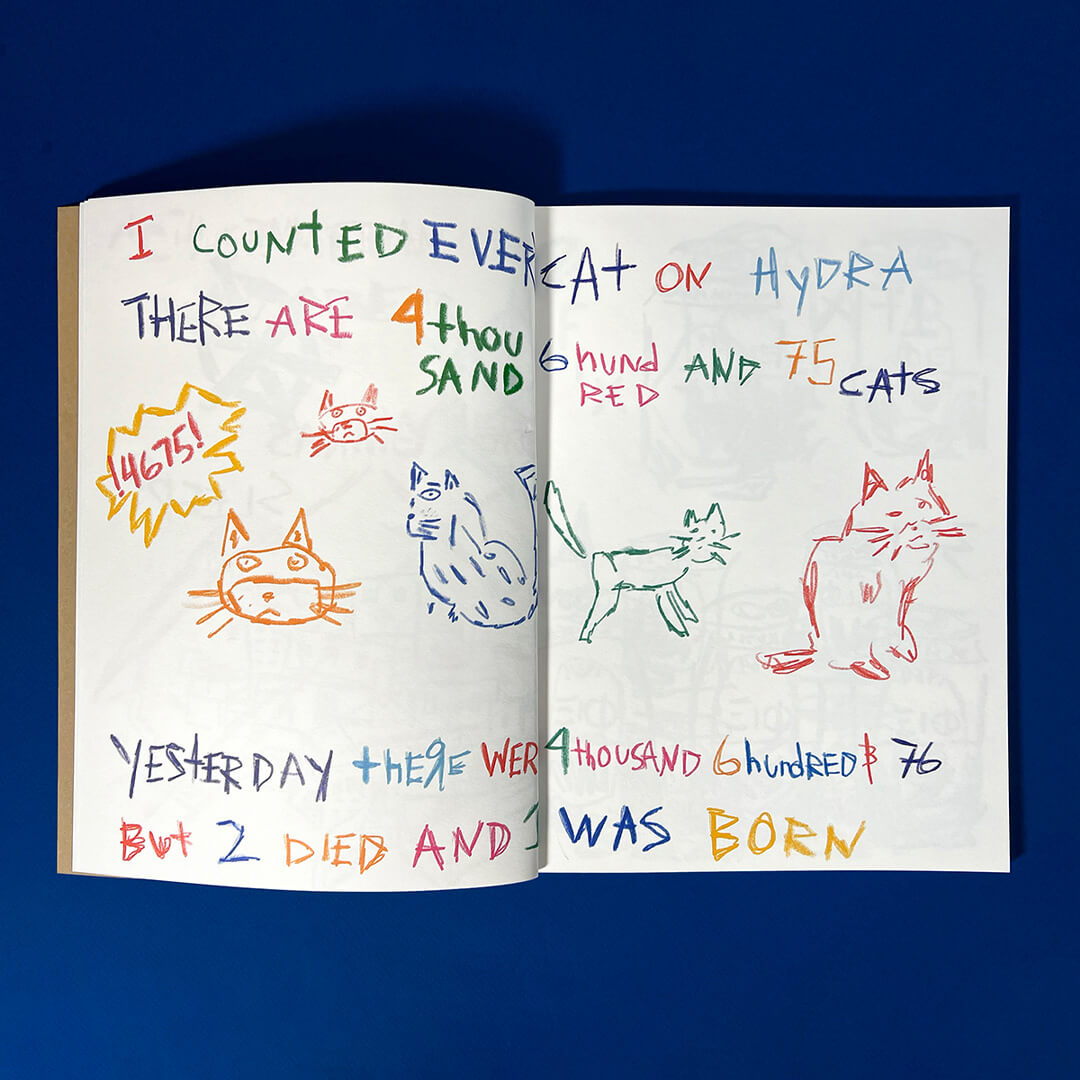 I COUNtED EVER CAt ON HyDRA
tHERE ARE 4thou SAND 6hund RED AND 75 CAtS
!4675!
YEStERDAY thERE WER 4thouSAND 6hundRED & 76
But 2 DIED AND 1 WAS BORN